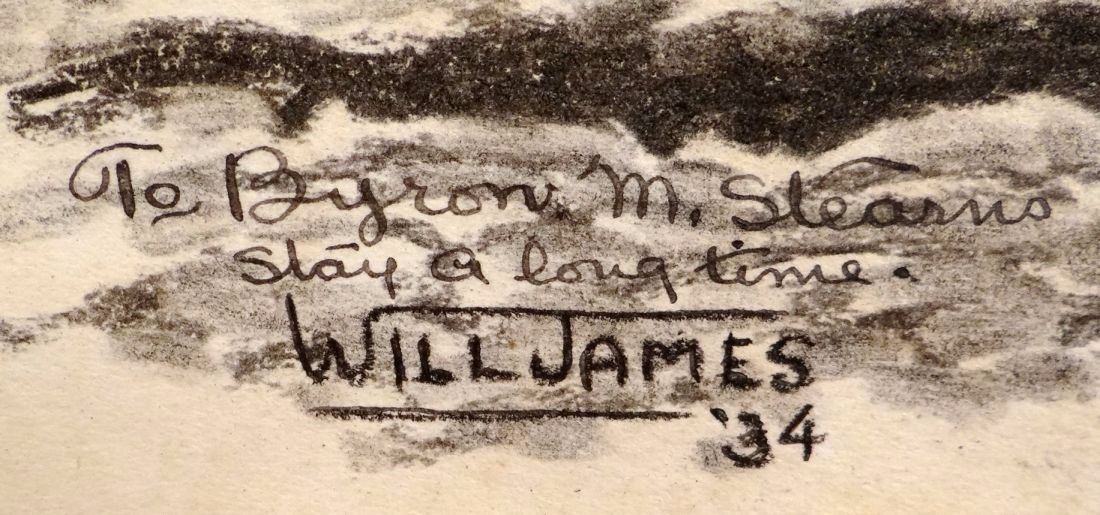 To Byron. M. Stearns
Stay a long time.
WILL JAMES
'34